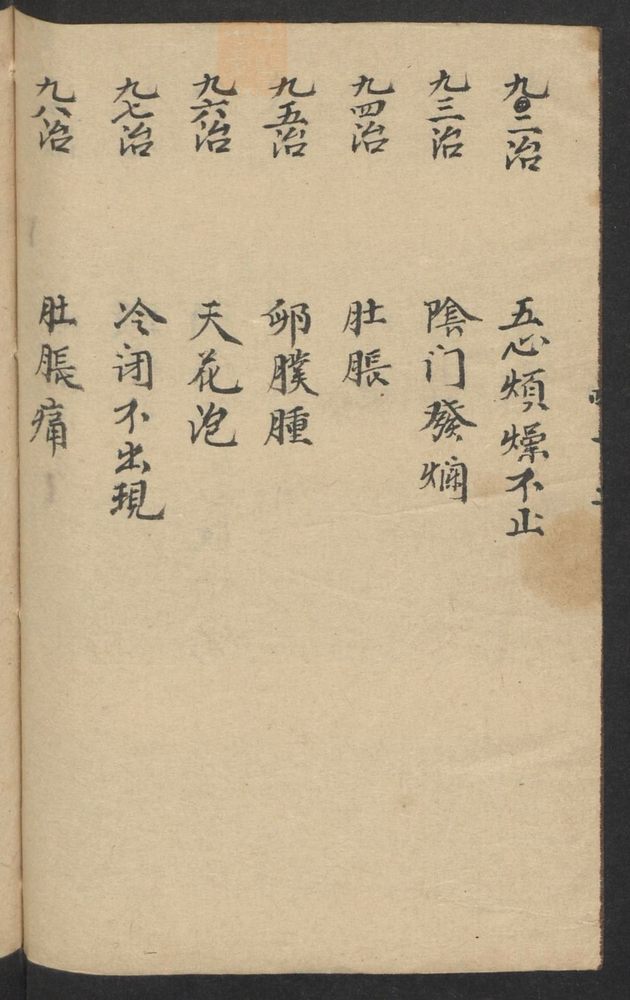 九二治 五心煩燥不止
九三治 陰门發爛
九四治 肚脹
九五治 卵膜腫
九六治 天花泡
九七治 冷闭不出現
九八治 肚脹痛